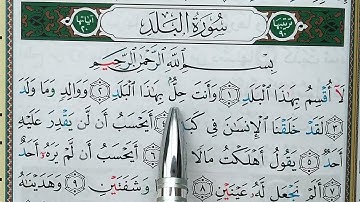 ترتيبها ٩٠ سُورَةُ البَلَدِ آياتها ٢٠
بِسْمِ ٱللَّهِ ٱلرَّحْمَٰنِ ٱلرَّحِيمِ
لَآ أُقْسِمُ بِهَٰذَا ٱلْبَلَدِ ١ وَأَنتَ حِلٌّۢ بِهَٰذَا ٱلْبَلَدِ ٢ وَوَالِدٍ وَمَا وَلَدَ
٣ لَقَدْ خَلَقْنَا ٱلْإِنسَٰنَ فِى أَيَحْسَبُ أَن لَّن يَقْدِرَ عَلَيْهِ
أَحَدٌ ٥ يَقُولُ أَهْلَكْتُ مَالًا ٦ أَيَحْسَبُ أَن لَّمْ يَرَهُۥٓ أَحَدٌ
٧ أَلَمْ نَجْعَل لَّهُۥ عَيْنَيْنِ ٨ وَشَفَتَيْنِ ٩ وَهَدَيْنَٰهُ